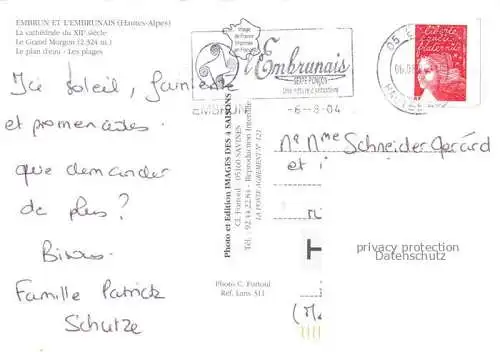 EMBRUN ET L'EMBRUNAIS (Hautes-Alpes)
La cathédrale du XIIe siècle
Le Grand Morgon (2 324 m.)
Le plan d'eau - Les plages
Ici soleil, farniente
et promenades.
que demander
de plus?
Bises
Famille Patrick
Schutze
Photo et Edition IMAGES DES 4 SAISONS
Cl. Fortoul - 05160 SAVINES
Tél. : 92.44.22.84 - Reproduction Interdite
LA POSTE AGREMENT N° 421
Photo C. Fortoul
Réf. Lans 511
Image de France
l'Embrunais
SERRE PONÇON
Une nature d'émotions
EMBRUN
-6-8-04
05
Liberté égalité fraternité
Mr Mme Schneider Gérard
et
privacy protection
Datenschutz